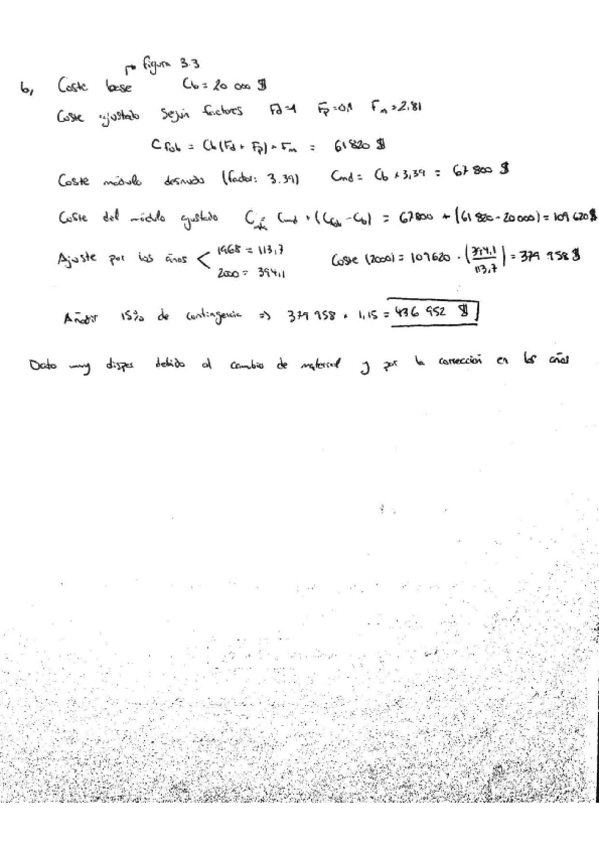 ↱ figura 3.3
b, Coste base Cb = 20 000 $
Coste ajustado según factores Fd=1 Fp=0,1 Fm=2.81
C Fob = Cb (Fd + Fp) × Fm = 61 820 $
Coste módulo desnudo (factor: 3.39) Cmd = Cb × 3,39 = 67 800 $
Coste del módulo ajustado = Cmd + (Cfob - Cb) = 67800 + (61 820 - 20 000) = 109 620 $
Ajuste por los años < 1968 = 113,7
2000 = 394,1
Coste (2000) = 109620 · (394,1 / 113,7) = 379 958 $
Añadir 15% de contingencia => 379 958 × 1,15 = 436 952 $
Dato muy dispar debido al cambio de material y por la corrección en los años